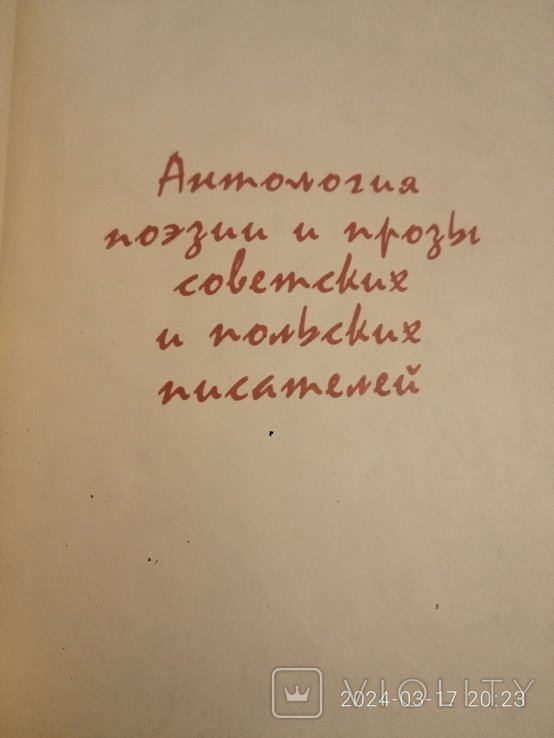 Антология
поэзии и прозы
советских
и польских
писателей
VIOLITY
2024-03-17 20:23